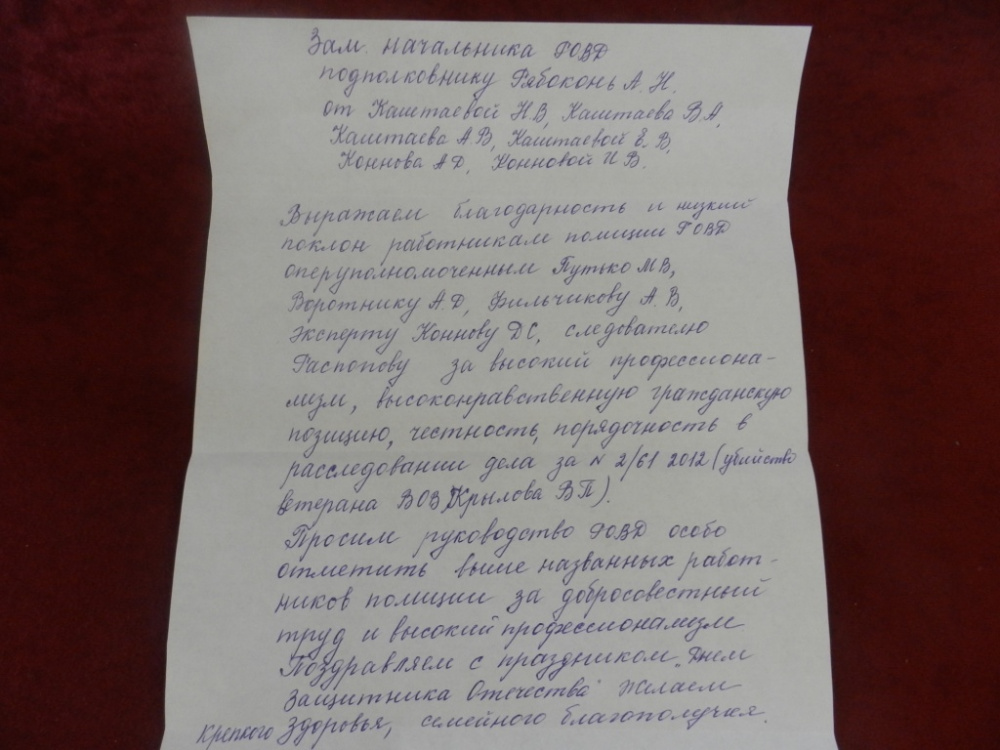 Зам. начальника ГОВД
подполковнику Рябоконь А. Н.
от Каштаевой Н.В, Каштаева В.А,
Каштаева А В, Каштаевой Е. В,
Коннова А Д, Конновой И В.
Выражаем благодарность и низкий
поклон работникам полиции ГОВД
оперуполномоченным Путько М В,
Воротнику А. Д, Фильчикову А. В,
эксперту Коннову Д С, следователю
Распопову за высокий профессиона-
лизм, высоконравственную гражданскую
позицию, честность, порядочность в
расследовании дела за № 2/61 2012 (убийство
ветерана ВОВ, Крылова В П).
Просим руководство ГОВД особо
отметить выше названных работ-
ников полиции за добросовестный
труд и высокий профессионализм
Поздравляем с праздником „Днем
Защитника Отечества" Желаем
крепкого здоровья, семейного благополучия.